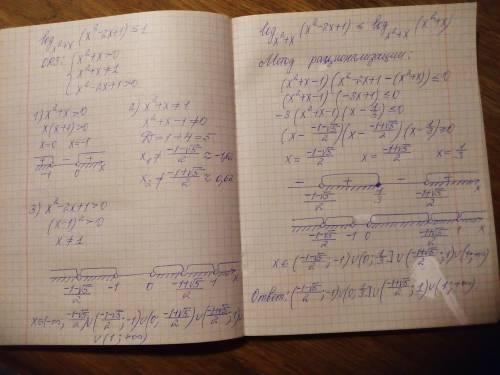 log_{x²+x}(x²-2x+1) ≤ 1
ОДЗ: { x²+x>0
x²+x≠1
x²-2x+1>0
1) x²+x>0
x(x+1)>0
x=0 x=-1
+ - +
-1 0 x
2) x²+x≠1
x²+x-1≠0
D=1+4=5
x₁ ≠ (-1-√5)/2 ≈ -1,62
x₂ ≠ (-1+√5)/2 ≈ 0,62
3) x²-2x+1>0
(x-1)²>0
x≠1
(-1-√5)/2 -1 0 (-1+√5)/2 1 x
x∈(-∞; (-1-√5)/2)∪((-1-√5)/2; -1)∪(0; (-1+√5)/2)∪((-1+√5)/2; 1)
∪(1; +∞)
log_{x²+x}(x²-2x+1) ≤ log_{x²+x}(x²+x)
Метод рационализации:
(x²+x-1)(x²-2x+1-(x²+x)) ≤ 0
(x²+x-1)(-3x+1) ≤ 0
-3(x²+x-1)(x-1/3) ≤ 0
(x-(-1-√5)/2)(x-(-1+√5)/2)(x-1/3) ≥ 0
x=(-1-√5)/2 x=(-1+√5)/2 x=1/3
- + - +
(-1-√5)/2 1/3 (-1+√5)/2 x
(-1-√5)/2 -1 0 1/3 (-1+√5)/2 1 x
x∈((-1-√5)/2; -1)∪(0; 1/3]∪((-1+√5)/2; 1)∪(1; +∞)
Ответ: ((-1-√5)/2; -1)∪(0; 1/3]∪((-1+√5)/2; 1)∪(1; +∞)